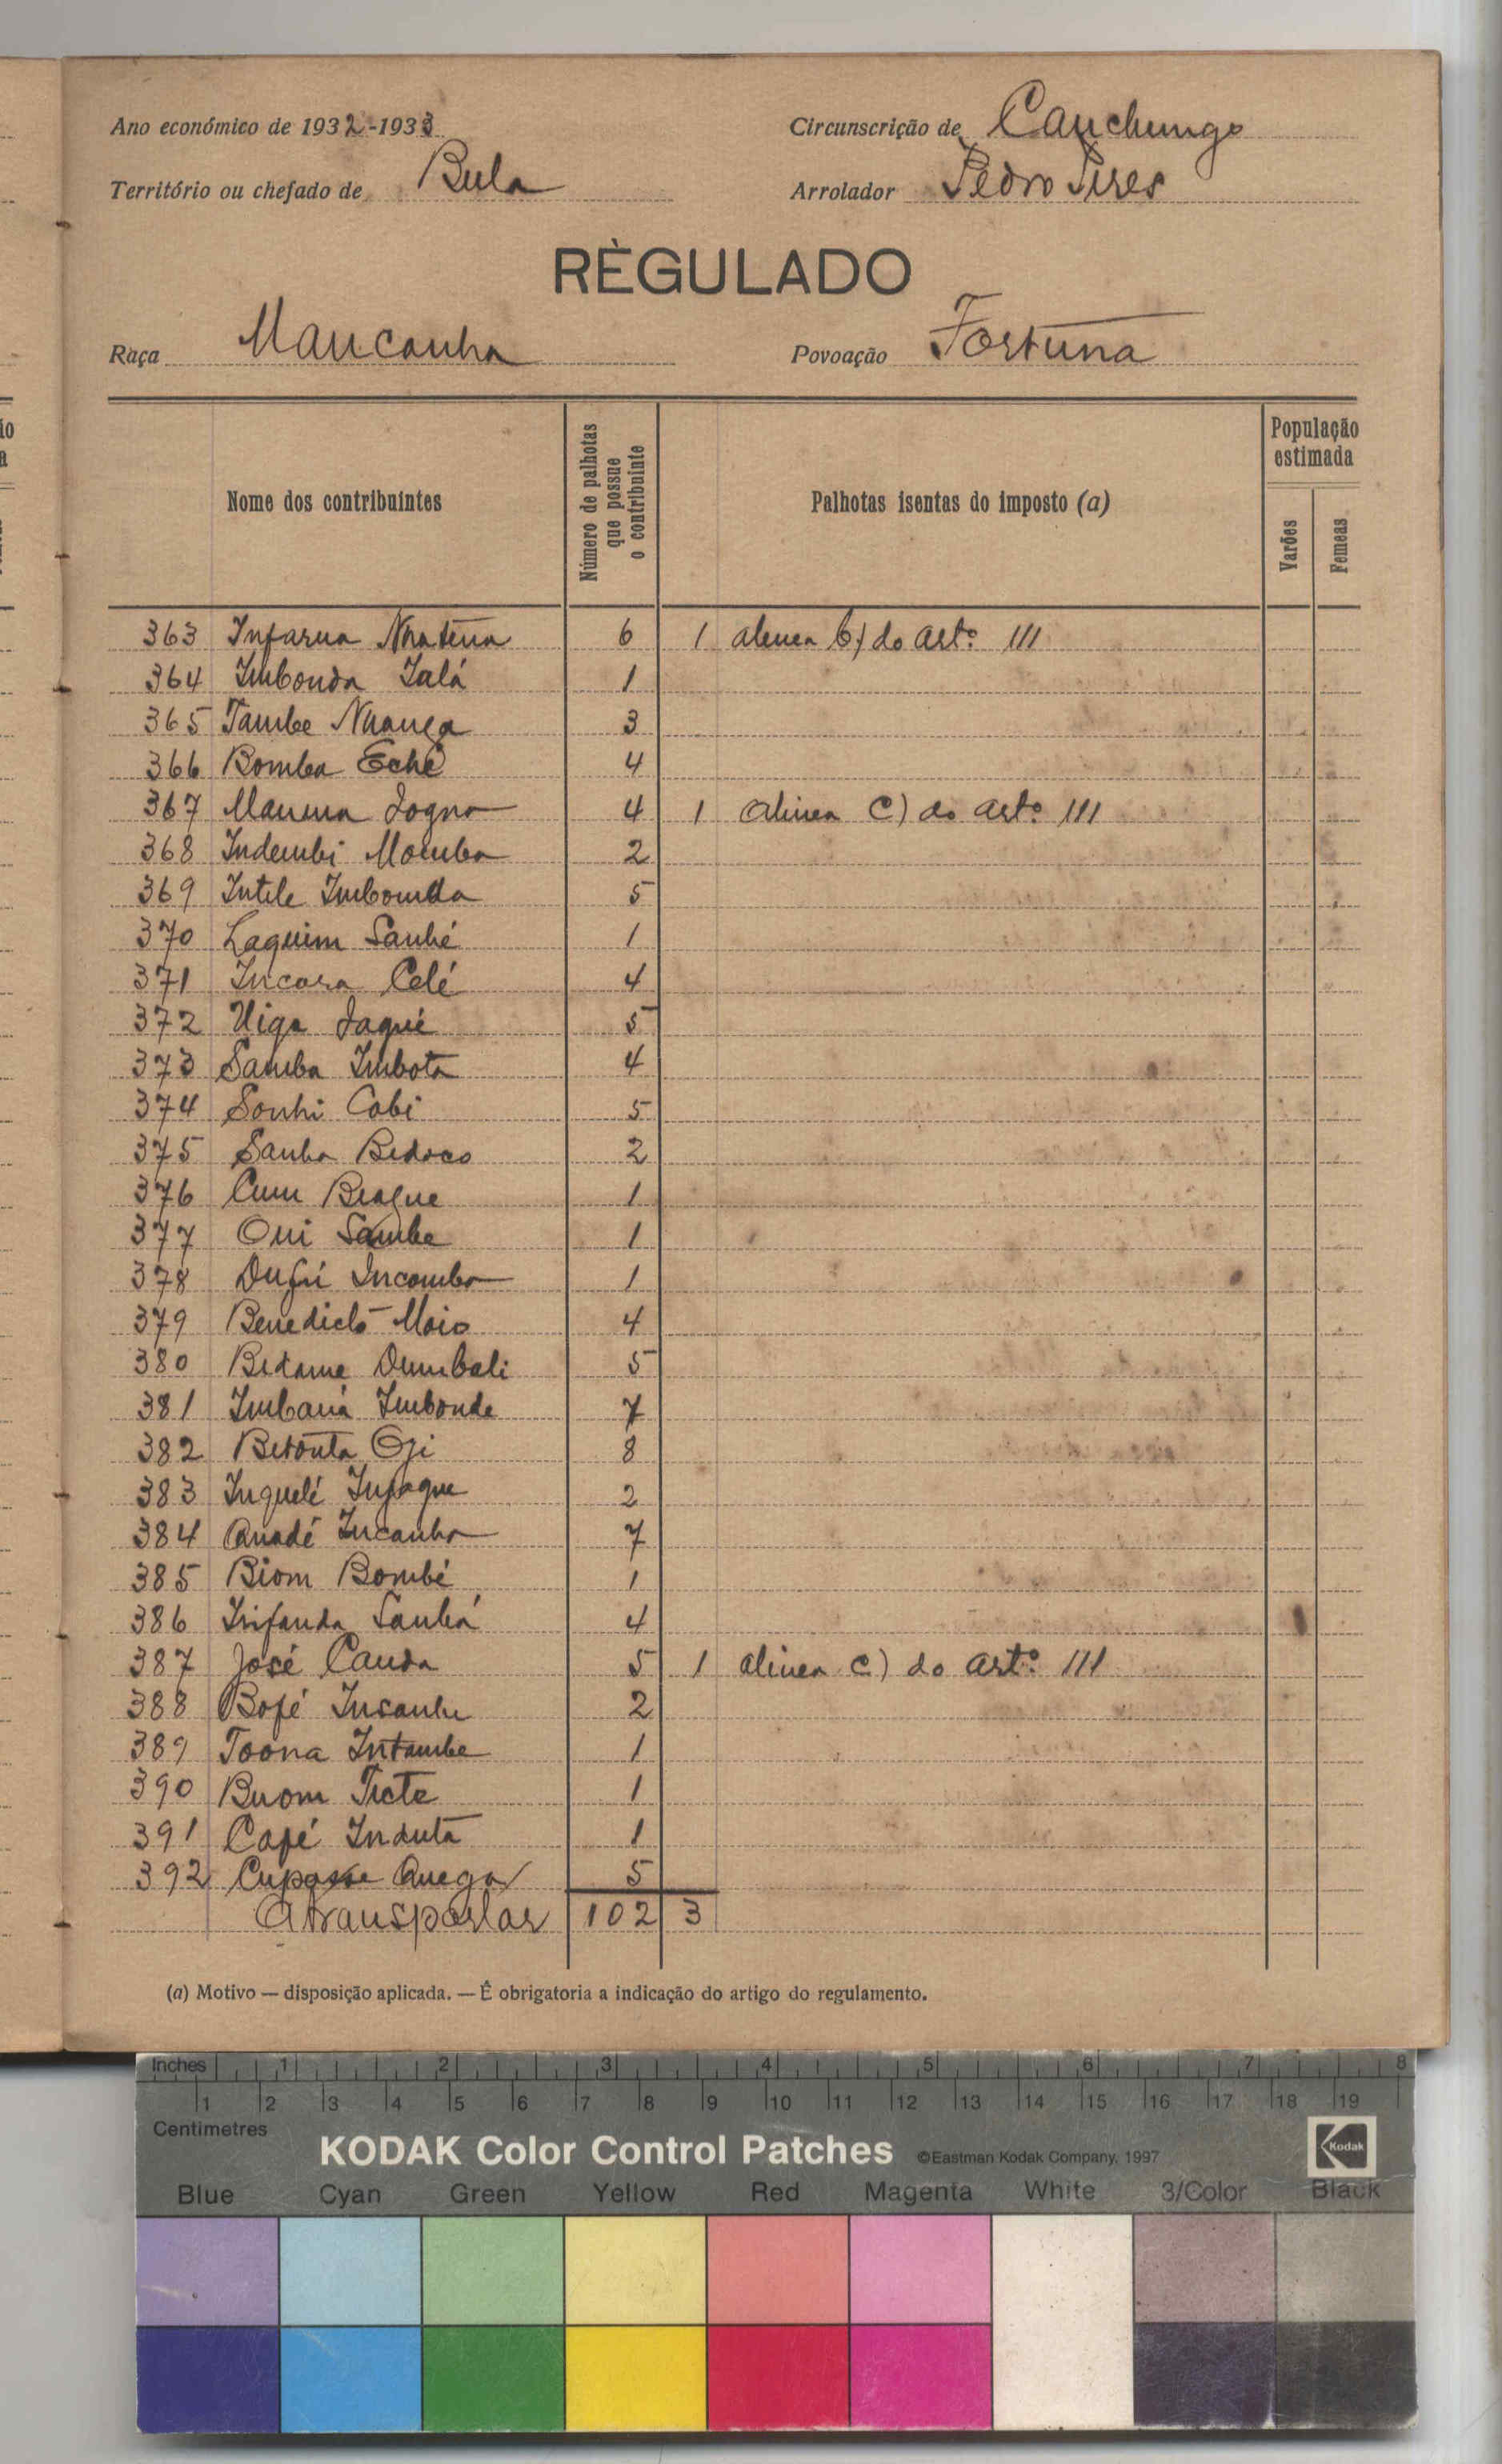 Ano económico de 1932-1933
Circunscrição de Cauchungo
Território ou chefado de Bula
Arrolador Pedro Pires
RÈGULADO
Raça Maucanha
Povoação Fortuna
Nome dos contribuintes
Número de palhotas que possue o contribuinte
Palhotas isentas do imposto (a)
População estimada
Varões
Femeas
363 Infarua Nhatena 6 1 alinea b) do artº 111
364 Imbonda Ialá 1
365 Tambe Nhanga 3
366 Bomba Eché 4
367 Manma Jogna 4 1 alinea C) do artº 111
368 Indembi Momba 2
369 Intile Imbomda 5
370 Laquim Sanhé 1
371 Incora Celé 4
372 Uiga Jaqué 5
373 Samba Imbota 4
374 Sonhi Cabi 5
375 Sanha Bidoco 2
376 Cum Biague 1
377 Oui Sambe 1
378 Dufú Incomba 1
379 Benedicto Maio 4
380 Bidame Dumbali 5
381 Imbaná Imbonde 7
382 Betonta Oji 8
383 Inquelé Infaque 2
384 Anadé Incanha 7
385 Biom Bombé 1
386 Infanda Sanhá 4
387 José Cauda 5 1 alinea c) do artº 111
388 Bofé Insanhe 2
389 Toona Intambe 1
390 Buom Ticte 1
391 Café Induta 1
392 Cupasse Quega 5
A transportar 102 3
(a) Motivo — disposição aplicada. — Ê obrigatoria a indicação do artigo do regulamento.
Inches 1 2 3 4 5 6 7 8
1 2 3 4 5 6 7 8 9 10 11 12 13 14 15 16 17 18 19
Centimetres
KODAK Color Control Patches ©Eastman Kodak Company, 1997 Kodak
Blue Cyan Green Yellow Red Magenta White 3/Color Black